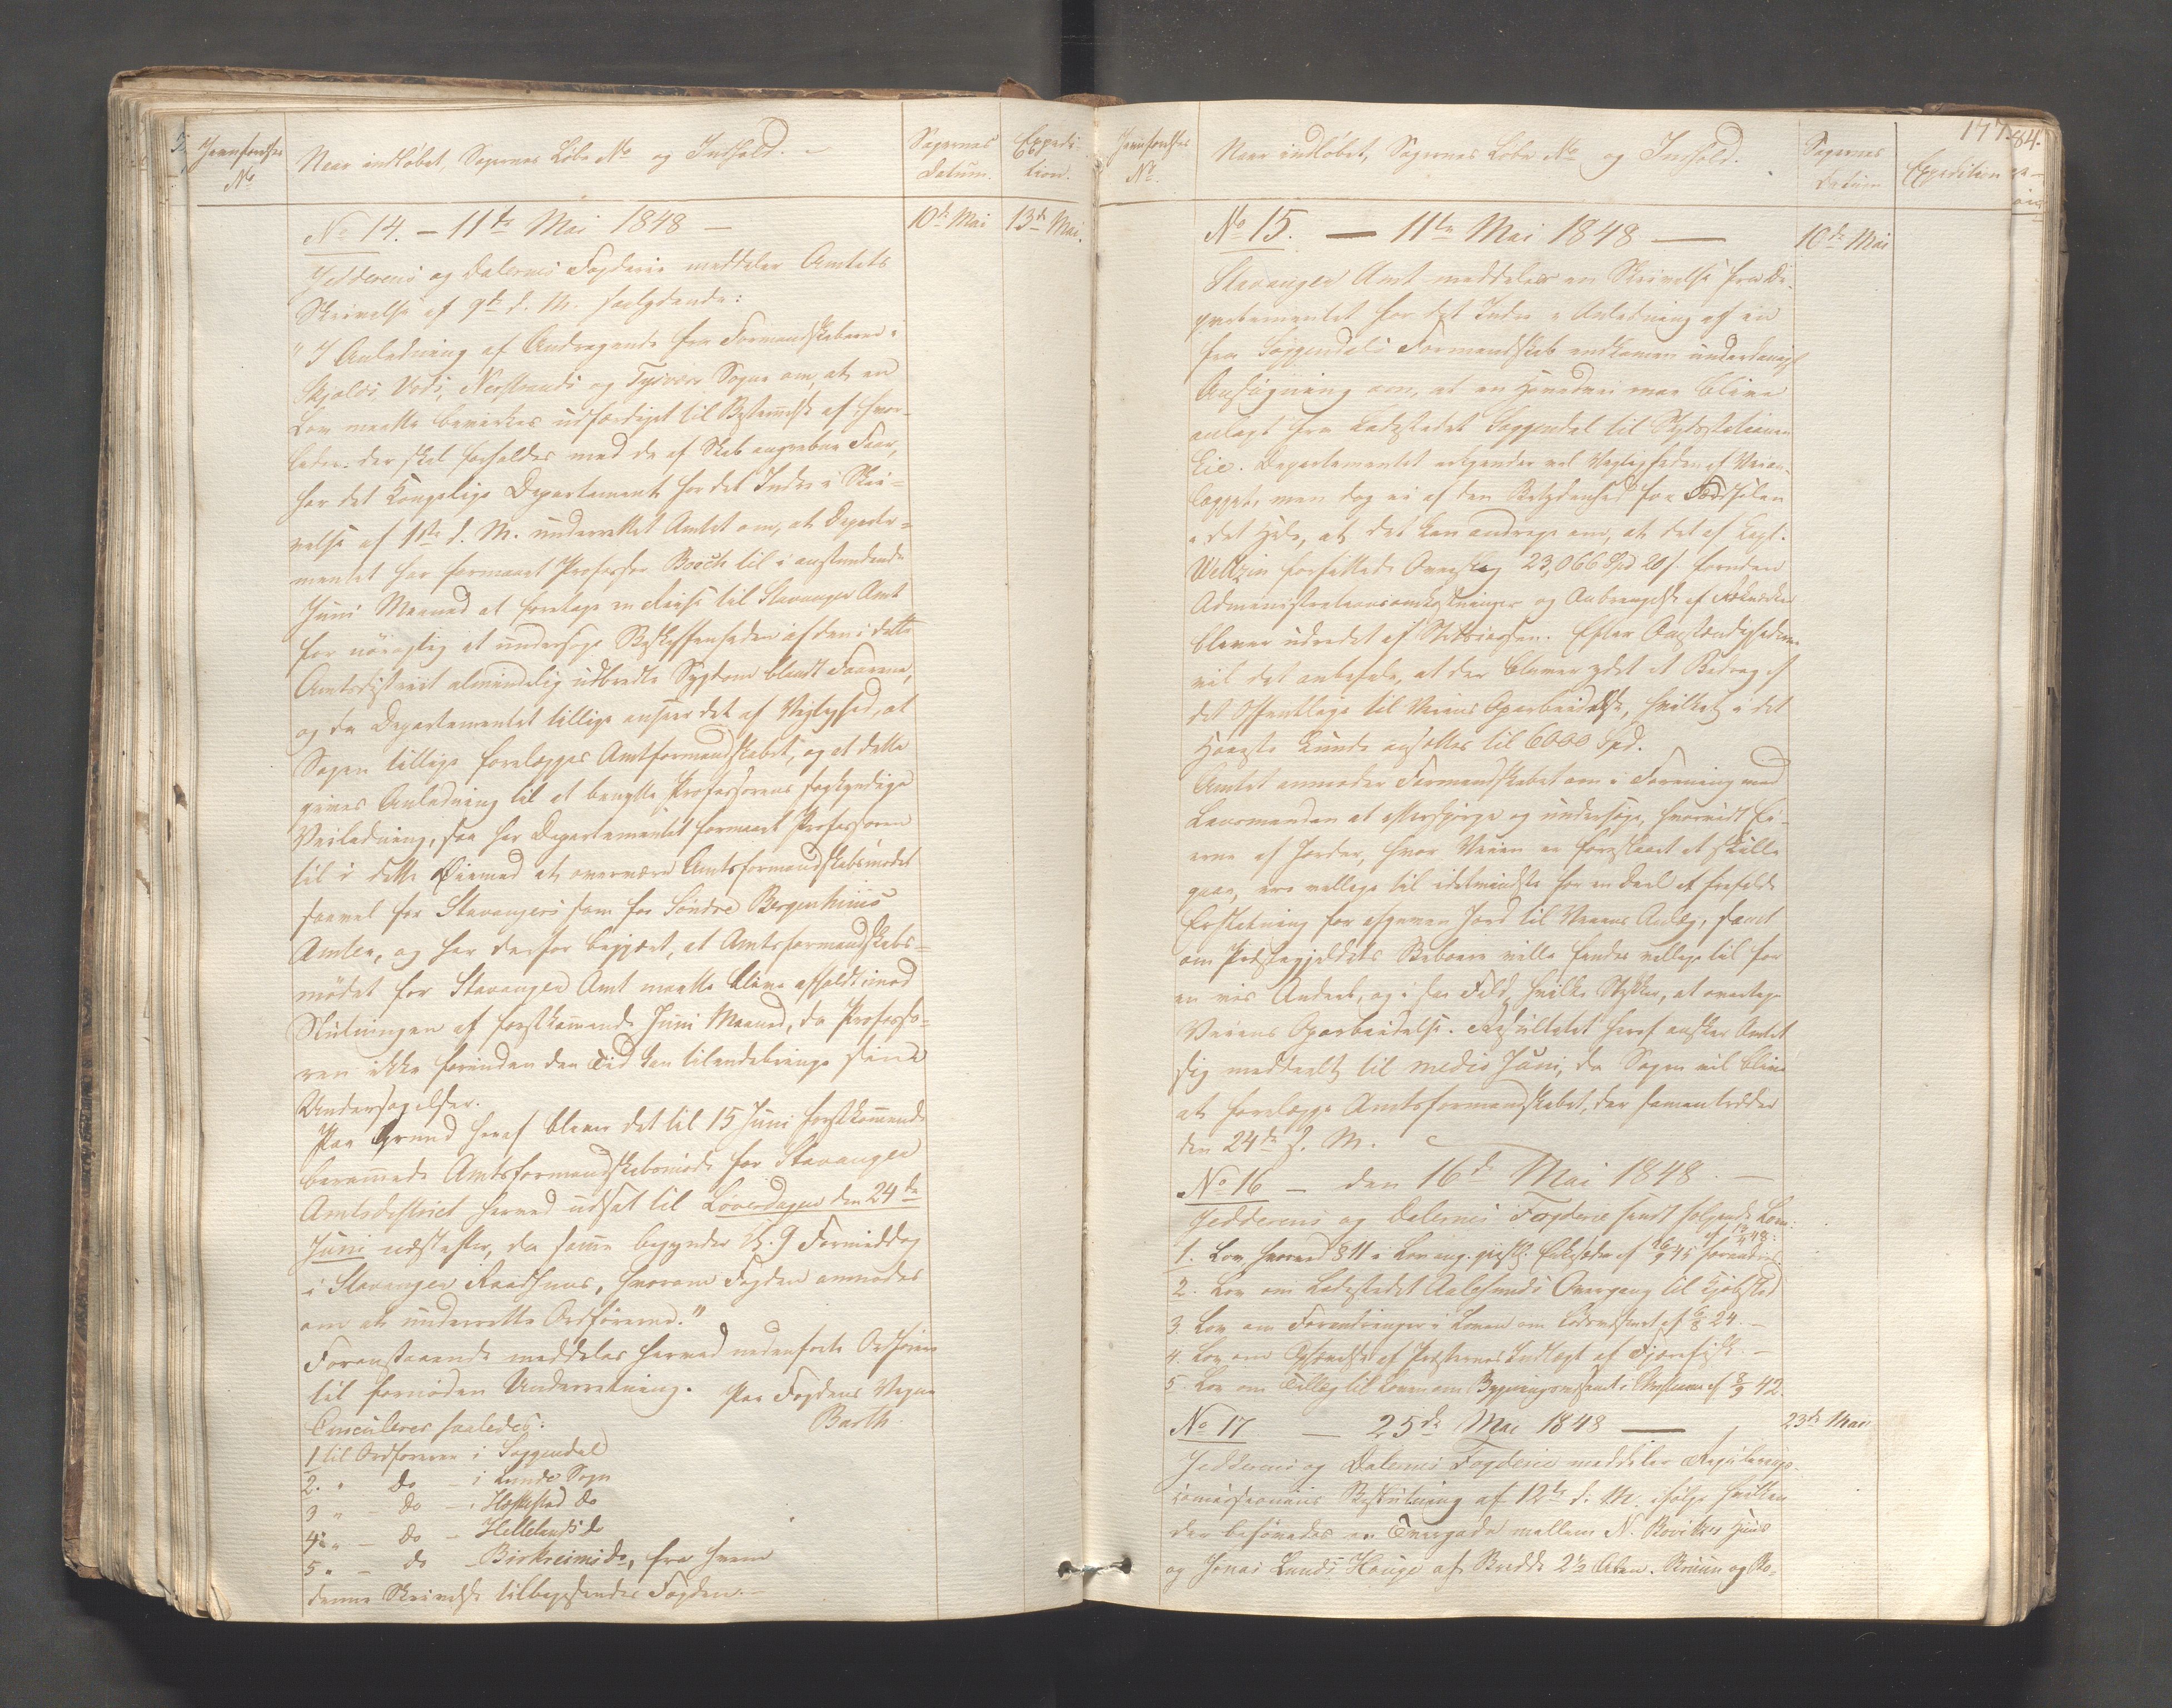 Jevnførelses No
Naar indløbet, Sagernes Løbe No og Indhold.
Sagernes Datum.
Expedition.
No 14. – 11te Mai 1848 –
10de Mai
13de Mai.
Jedderens og Dalernes Fogderie meddeler Amtets
Skrivelse af 9de d. M. saalydende:
"I Anledning af Andragende fra Formandskaberne i
Skjolds, Vats, Nerstrands og Tysvær Sogne om, at en
Lov maatte bevirkes udfærdiget til Bestemmelse af hvor-
ledes der skal forholdes med de af Skab angrebne Faar,
har det Kongelige Departement for det Indre i Skri-
velse af 1ste d. M. underrettet Amtet om, at Departe-
mentet har formaaet Professor Boeck til i anstundende
Juni Maaned at foretage en Reise til Stavanger Amt
for nøiagtig at undersøge Beskaffenheden af den i dette
Amtsdistrict almindelig udbredte Sygdom blandt Faarene,
og da Departementet tillige anseer det af Vigtighed, at
Sagen tillige forelægges Amtsformandskabet, og at dette
gives Anledning til at benytte Professorens sagkyndige
Veiledning, saa har Departementet formaaet Professoren
til i dette Øiemed at overvære Amtsformandskabsmødet
saavel for Stavangers som for Søndre Bergenhuus
Amter, og har derfor begjært, at Amtsformandskabs-
mødet for Stavanger Amt maatte blive afholdt imod
Slutningen af førstkommende Juni Maaned, da Professo-
ren ikke forinden den Tid kan tilendebringe sine
Undersøgelser.
Paa Grund heraf bliver det til 15 Juni førstkommende
berammede Amtsformandskabsmøde for Stavanger
Amtsdistrict herved udsat til Løverdagen den 24de
Juni næstefter, da samme begynder Kl. 9 Formiddag
i Stavanger Raadhuus, hvorom Fogden anmodes
om at underrette Ordførerne."
Foranstaaende meddeles herved nedenførte Ordførere
til fornøden Underretning. Paa Fogdens Vegne
Barth.
Circulerer saaledes:
1 til Ordføreren i Soggendal
2. " do – i Lunde Sogn
3 " – do – i Heskestad do
4. " – do – Hellelands do
5 " – do – Birkreims do, fra hvem
denne Skrivelse tilbagesendes Fogden.–
177
84.
Jevnførelses No.
Naar indløbet, Sagernes Løbe No og Indhold.
Sagernes Datum
Expedition
No 15. — 11te Mai 1848 —
10de Mai
Stavanger Amt meddeler en Skrivelse fra De-
partementet for det Indre i Anledning af en
fra Soggendals Formandskab indkommen underdanigst
Ansøgning om, at en Hovedvei maa blive
anlagt fra Ladestedet Soggendal til Skydsstationen
Eie. Departementet erkjender vel Vigtigheden af Veian-
lægget, men dog ei af den Betydenhed for Færdselen
i det Hele, at det kan andrage om, at det af Capt.
Wetlzin forfattede Overslag 23,066 Spd 20 s. foruden
Administrationsomkostninger og Anbringelse af Rækværker
bliver udredet af Statscassen. Efter Omstændighederne
vil det anbefale, at der bliver ydet et Bidrag af
det Offentlige til Veiens Oparbeidelse, hvilket i det
Høieste kunde ansættes til 6000 Spd.
Amtet anmoder Formandskabet om i Forening med
Lensmanden at efterspørge og undersøge, hvorvidt Ei-
erne af Jorder, hvor Veien er foreslaaet at skulle
gaae, ere villige til idetmindste for en Deel at frafalde
Erstatning for afgiven Jord til Veiens Anlæg, samt
om Præstegjeldets Beboere ville findes villige til for
en vis Andeel, og i saa Fald hvilke Stykker, at overtage
Veiens Oparbeidelse. Resultatet heraf ønsker Amtet
sig meddeelt til medio Juni, da Sagen vil blive
at forelægge Amtsformandskabet, der sammentræder
den 24de s. M.
No 16 – den 16de Mai 1848. –
Jedderens og Dalernes Fogderie sendt følgende Love:
1. Lov hvorved § 11 i Lov ang. geistl. Enkesæder af 26/9 45 forandres
2. Lov om Ladestedet Aalesunds Overgang til Kjøbsted
3. Lov om Forandringer i Loven om Lodsvæsenet af 6/8 24. –
4. Lov om Ophævelse af Præsternes Indtægt af Fjærefisk. –
5. Lov om Tillæg til Loven om Bygningsvæsenet i Christiania af 8/9 42.
No 17 — 25de Mai 1848 —
23de Mai
Jedderens og Dalernes Fogderie meddeler Regulerings-
commissionens Beslutning af 12te d. M. ifølge hvilken
der beføiedes en Tvergade mellem N. Boviks Huus
og Jonas Lunds Hauge af Bredde 2½ Alen. Bruun og Bo-